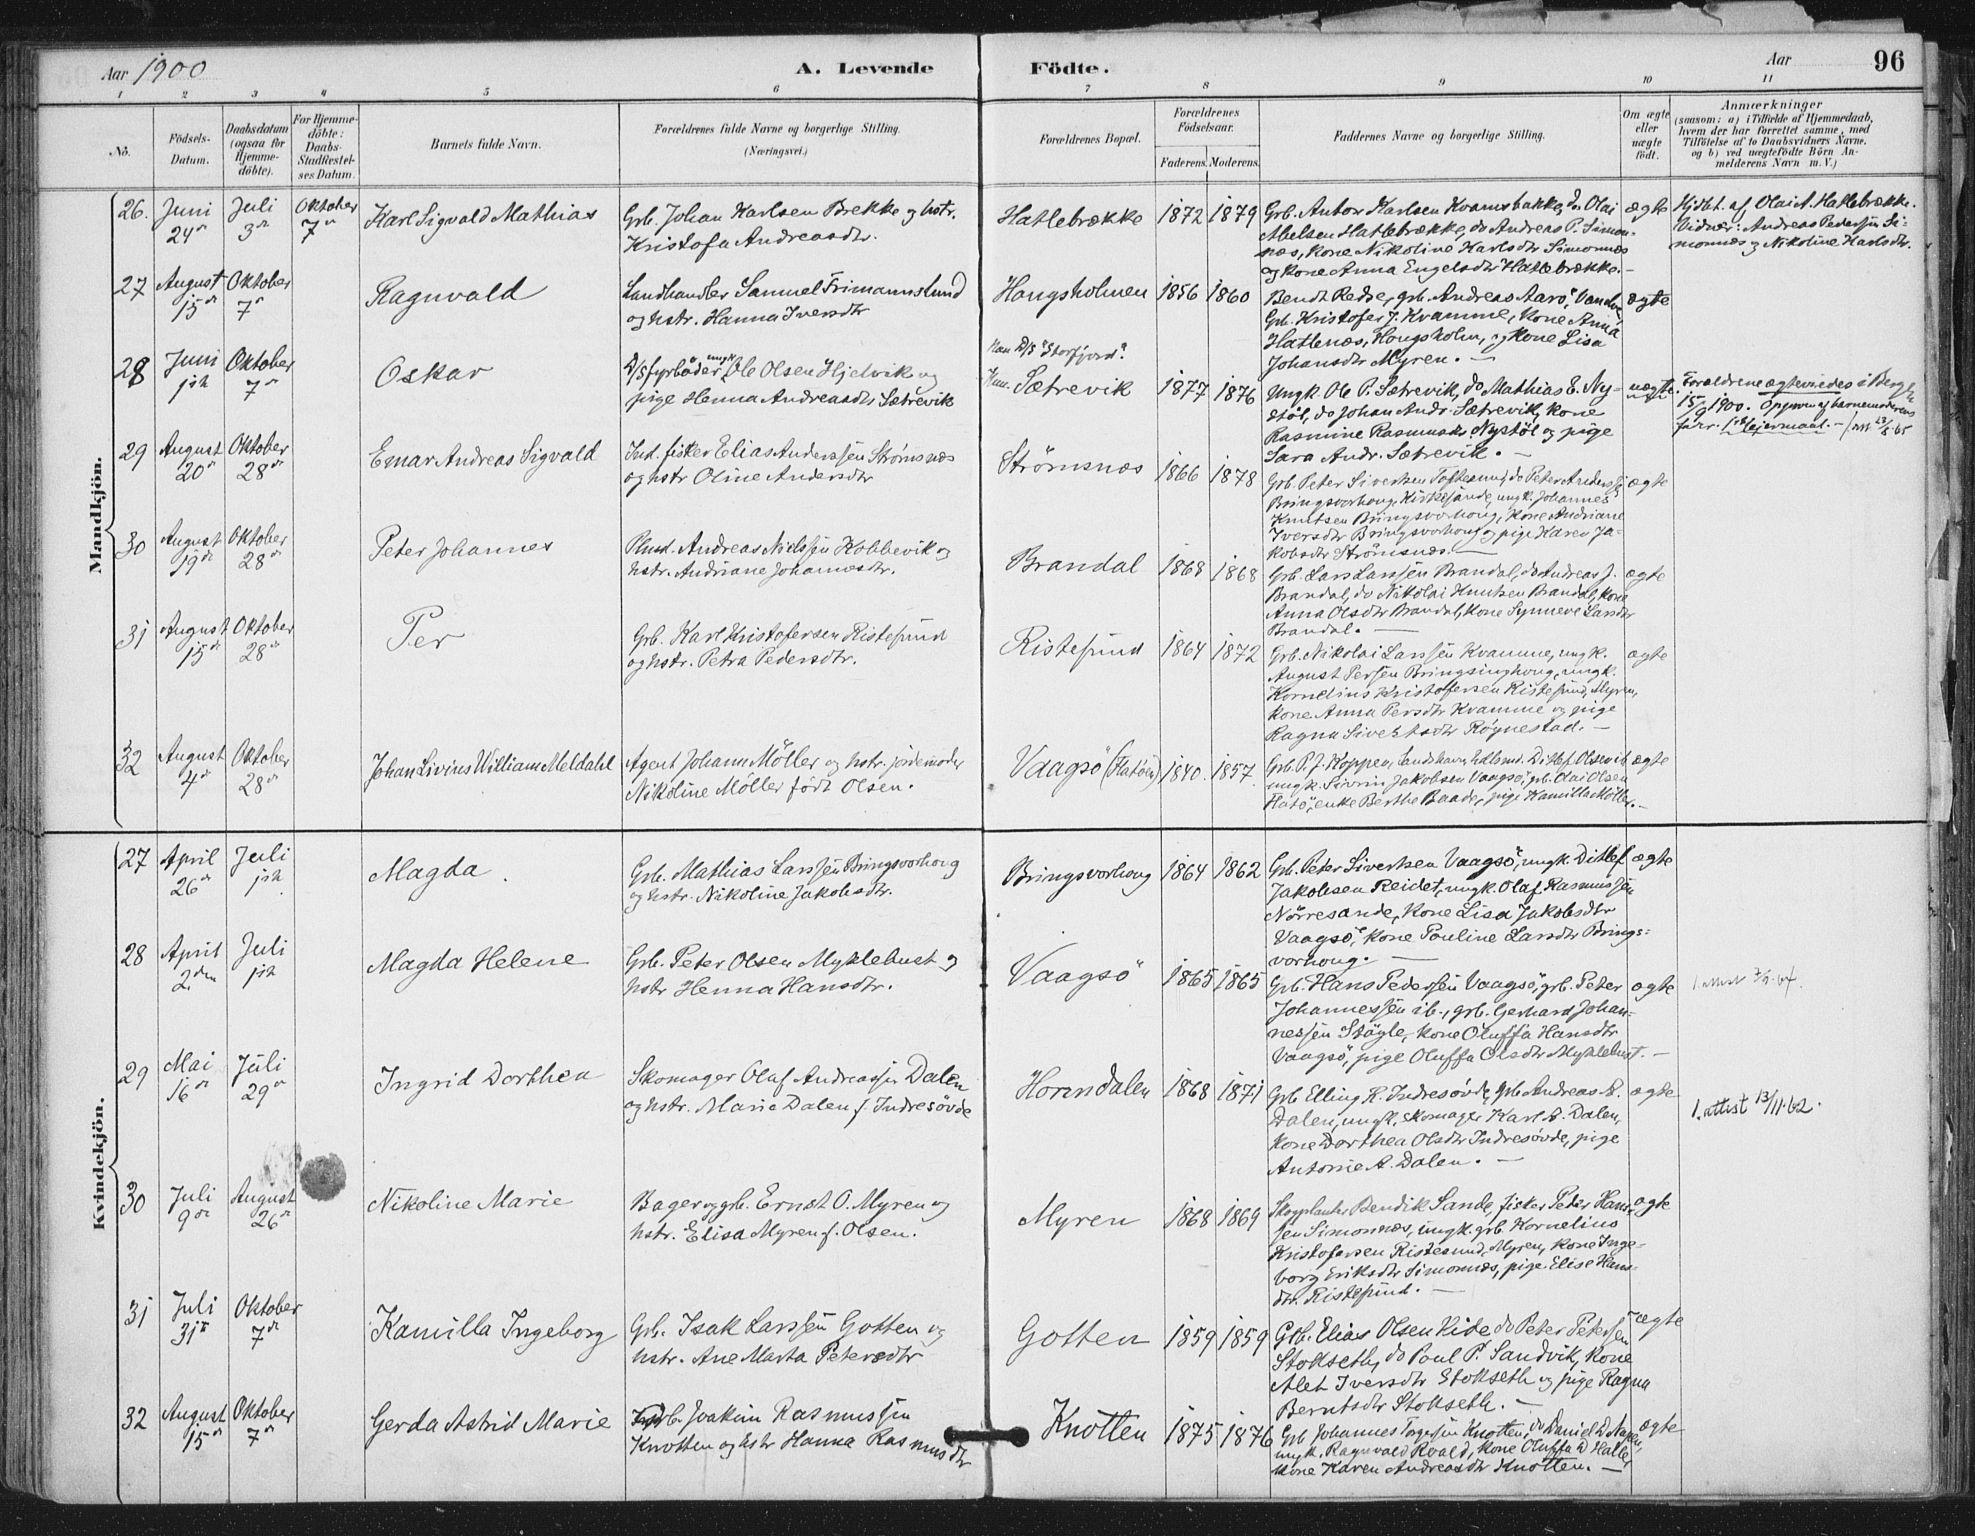 Aar 1900
A. Levende Födte.
Aar
96
1 2 3 4 5 6 7 8 9 10 11
No.
Födsels-Datum.
Daabsdatum (ogsaa for Hjemme-döbte).
For Hjemme-döbte: Daabs-Stadfæstel-ses Datum.
Barnets fulde Navn.
Forældrenes fulde Navne og borgerlige Stilling.
(Næringsvei.)
Forældrenes Bopæl.
Forældrenes Födselsaar.
Faderens. Moderens.
Faddernes Navne og borgerlige Stilling.
Om ægte eller uægte født.
Anmærkninger
(saasom: a) i Tilfælde af Hjemmedaab,
hvem der har forrettet samme, med
Tilföielse af to Daabsvidners Navne,
og b) ved uægtefödte Börn An-
melderens Navn m. V.)
Mandkjön.
26. Juni 24de Juli 3de Oktober 7de Karl Sigvald Mathias
Grb. Johan Karlsen Brekke og hstr.
Kristofa Andreasdtr.
Hatlebrække 1872 1879
Grb. Anton Karlsen Kvamsbakke, do Olai
Abelsen Hatlebrække, do Andreas P. Simon-
næs, kone Nikoline Karlsdtr Simonnæs
og kone Anna Engelsdtr Hatlebrække. –
ægte
Hjdbt. af Olai A. Hatlebrække.
Vidner: Andreas Pedersen Si-
monnæs og Nikoline Karlsdtr.
27 August 15de Oktober 7de Ragnvald
Landhandler Samuel Frimannslund
og hstr. Hanna Iversdtr
Hougsholmen 1856 1860
Bendt Redse, grb. Andreas Aarö, Vandve,
Grb. Kristofer J. Kvamme, kone Anna
Hatlenæs, Hougsholm, og kone Lisa
Johansdtr Myren. –
ægte
28 Juni 1ste Oktober 7de Oskar
D/S fyrböder ungk. Ole Olsen Hjelvik og
pige Henna Andreasdtr Sætrevik
Han D/S "Storfjord".
Hun. Sætrevik 1877 1876
Ungk. Ole P. Sætrevik, do Mathias E. Ny-
stöl, do Johan Andr. Sætrevik, kone
Rasmine Rasmusdtr Nystöl og pige
Sara Andr. Sætrevik. –
uægte
Forældrene ægteviedes i Bergen
15/9 1900. Opgiven af barnemoderens
far. 1ste Leiermaal. –
29 August 20de Oktober 28de Emar Andreas Sigvald
Ind. fisker Elias Anderssen Strømsnæs
og hstr Oline Andersdtr
Strömsnæs 1866 1878
Grb. Peter Sivertsen Toftesund, do Peter Anderssen
Bringsvorhoug, Kirkesande, ungk. Johannes
Knutsen Bringsvorhoug, kone Andriane
Iversdtr Bringsvorhoug og pige Karen Ja-
kobsdtr Strömsnæs. –
ægte
30 August 19de Oktober 28de Peter Johannes
Plmd. Andreas Nielssen Kobbevik og
hstr. Andriane Johannesdtr.
Brandal 1868 1868
Grb. Lars Larssen Brandal, do Andreas J.
Brandal, do Nikolai Knutsen Brandal, kone
Anna Olsdtr Brandal, kone Synneve Larsdtr
Brandal. –
ægte
31 August 15de Oktober 28de Per
Grb. Karl Kristofersen Ristesund
og hstr. Petra Pedersdtr.
Ristesund 1864 1872
Grb. Nikolai Larssen Kvamme, ungk.
August Perssen Bringsinghoug, ungk.
Kornelius Kristoffersen Ristesund, Myren,
kone Anna Persdtr Kvamme og pige
Ragna Sivertsdtr Røgnestad. –
ægte
32 August 4de Oktober 28de Johan Livius William Meldahl
Agent Johann Möller og hstr. jordemoder
Nikoline Möller født Olsen.
Vaagsö (Flatöen) 1840. 1857.
Grb. P. J. Koppen, Ditlef Olsevik
ungk. Sivrin Jakobsen Vaagsö, grb. Olai Olsen
Flatö, enke Berthe Baade, pige Kamilla Möller. –
ægte
Kvindekjön.
27 April 26de Juli 1ste Magda
Grb. Mathias Larssen Bringsvorhoug
og hstr. Nikoline Jakobsdtr.
Bringsvorhoug 1864 1862
Grb. Peter Sivertsen Vaagsö, ungk. Ditlef
Jakobsen Reidet, ungk. Olaf Rasmussen
Nörresande, kone Lisa Jakobsdtr
Vaagsö, kone Pauline Larsdtr Brings-
vorhoug. –
ægte
28 April 2den Juli 1ste Magda Helene
Grb. Peter Olsen Myklebust og
hstr Henna Hansdtr.
Vaagsö 1865 1865
Grb. Hans Pederssen Vaagsö, grb. Peter
Johannessen ib., grb. Gerhard Johan-
nessen Stöyle, kone Oluffa Hansdtr
Vaagsö, pige Oluffa Olsdtr Myklebust. –
ægte
29 Mai 16de Juli 29de Ingrid Dorthea
Skomager Olaf Andreassen Dalen
og hstr. Marie Dalen f. Indresövde
Horendalen 1868 1871
Grb Elling R. Indresövde, Grb Andreas A.
Dalen, ungk. skomager Karl A. Dalen,
kone Dorthea Olsdtr Indresövde, pige
Antonie A. Dalen. –
ægte
1. attest 13/11.62.
30 Juli 9de August 26de Nikoline Marie
Bager og grb. Ernst O. Myren og
hstr. Elisa Myren f. Olsen.
Myren 1868 1869
Skogplanter Bendik Sande, fisker Peder Hans-
sen Simonnæs, ungk. grb. Kornelius
Kristofersen Ristesund, Myren, kone Inge-
borg Eriksdtr Simonnæs, pige Elise Hans-
dtr. Ristesund. –
ægte
31 Juli 31te Oktober 7de Kamilla Ingeborg
Grb. Isak Larssen Gotten og
hstr. Ane Marta Petersdtr
Gotten 1859 1859
Grb. Elias Olsen Eide, do Peter Peterssen
Stokseth, do Poul P. Sandvik, kone
Alet Iversdtr Stokseth og pige Ragna
Berntsdtr Stokseth. –
ægte
32 August 15de Oktober 7de Gerda Astrid Marie
Grb. Joakim Rasmussen
Knotten og hstr Hanna Rasmusdtr
Knotten 1875 1876
Grb Johannes Knotten, do Daniel D.
ungk. Ragnvald Roald, kone Oluffa D Halle,
kone Karen Andreasdtr Knotten. –
ægte